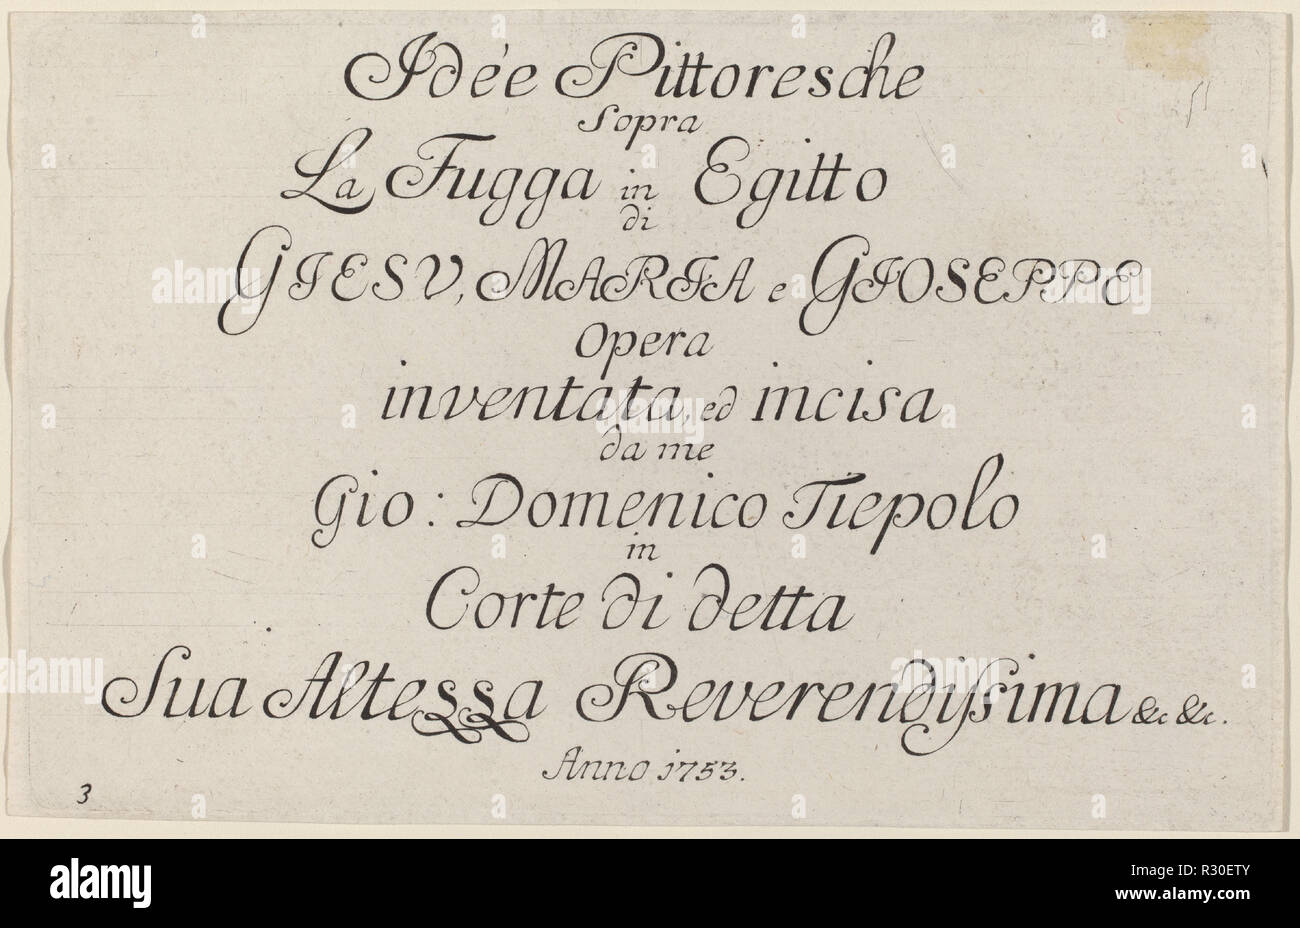 Idée Pittoresche
Sopra
La Fugga in Egitto
di
GIESV, MARIA e GIOSEPPE
Opera
inventata, ed incisa
da me
Gio: Domenico Tiepolo
in
Corte di detta
Sua Altessa Reverendissima &c &c.
Anno 1753.
3
alamy
alamy stock photo
R30ETY
www.alamy.com